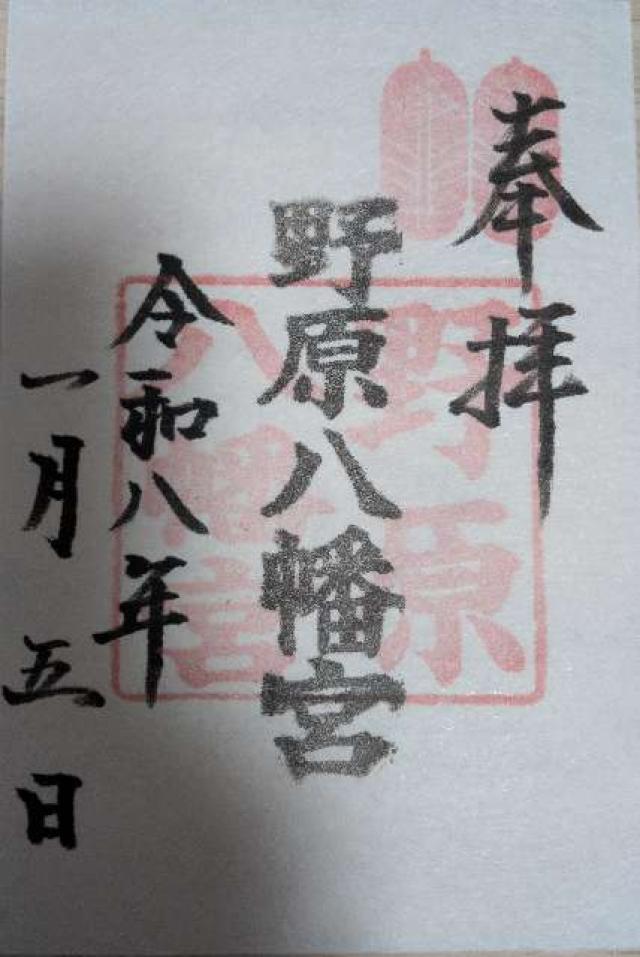 奉拝
野原八幡宮
野原
八幡宮
令和八年
一月五日